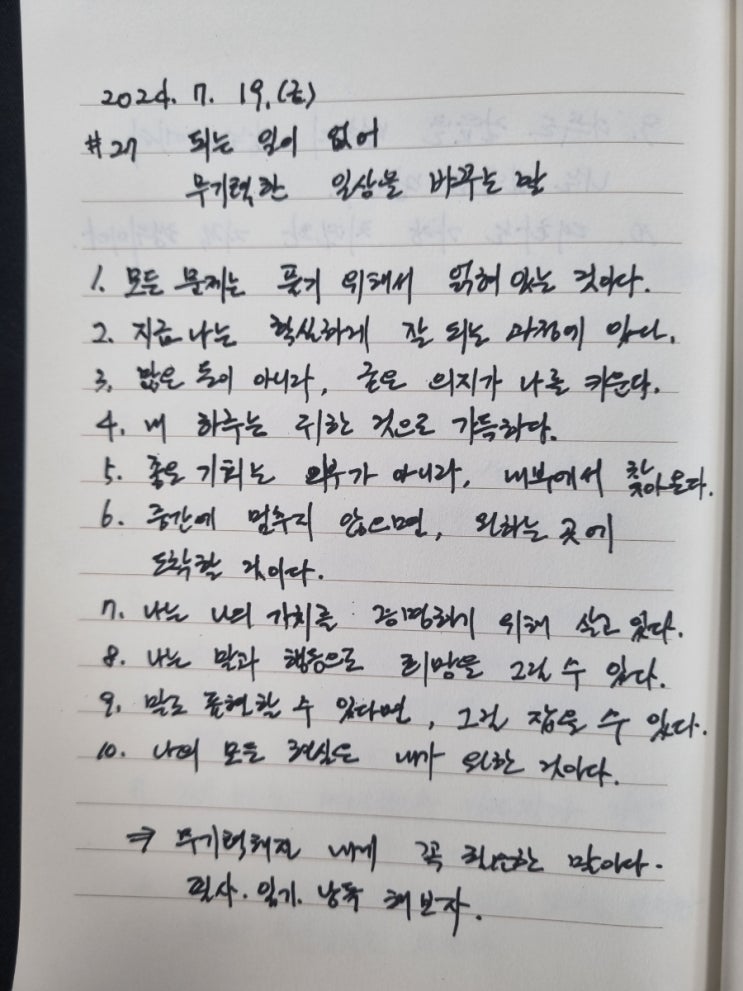 2024. 7. 19. (금)
#27 되는 일이 없어
무기력한 일상을 바꾸는 말
1. 모든 문제는 풀기 위해서 얽혀 있는 것이다.
2. 지금 나는 확실하게 잘 되는 과정에 있다.
3. 많은 돈이 아니라, 굳은 의지가 나를 키운다.
4. 내 하루는 귀한 것으로 가득하다.
5. 좋은 기회는 외부가 아니라, 내부에서 찾아온다.
6. 중간에 멈추지 않으면, 원하는 곳에
도착할 것이다.
7. 나는 나의 가치를 증명하기 위해 살고 있다.
8. 나는 말과 행동으로 희망을 그릴 수 있다.
9. 말로 표현할 수 있다면, 그걸 잡을 수 있다.
10. 나의 모든 현실은 내가 원한 것이다.
⇒ 무기력해진 내게 꼭 필요한 말이다.
필사. 읽기. 낭독 해보자.